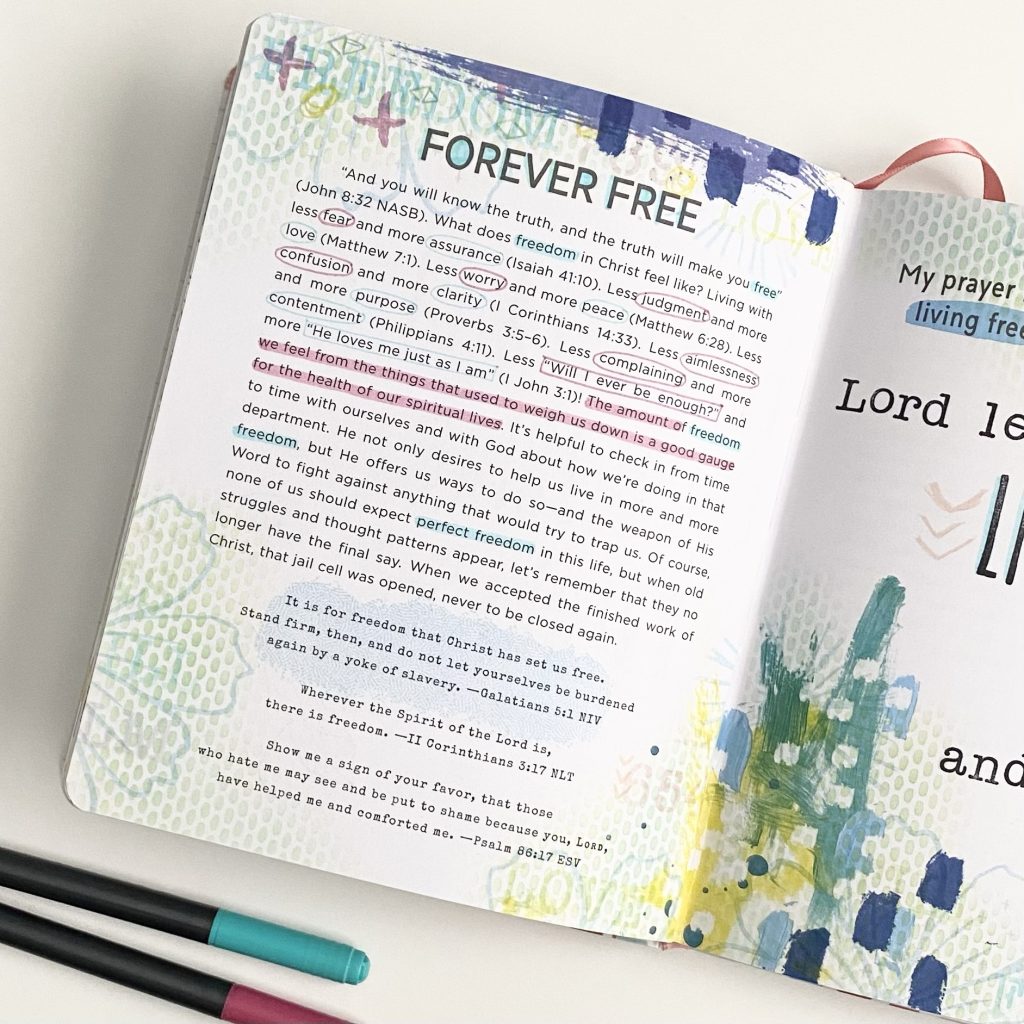 FREEDOM
FOREVER FREE
“And you will know the truth, and the truth will make you free”
(John 8:32 NASB). What does freedom in Christ feel like? Living with
less fear and more assurance (Isaiah 41:10). Less judgment and more
love (Matthew 7:1). Less worry and more peace (Matthew 6:28). Less
confusion and more clarity (I Corinthians 14:33). Less aimlessness
and more purpose (Proverbs 3:5–6). Less complaining and more
contentment (Philippians 4:11). Less “Will I ever be enough?” and
more “He loves me just as I am” (I John 3:1)! The amount of freedom
we feel from the things that used to weigh us down is a good gauge
for the health of our spiritual lives. It’s helpful to check in from time
to time with ourselves and with God about how we’re doing in that
department. He not only desires to help us live in more and more
freedom, but He offers us ways to do so—and the weapon of His
Word to fight against anything that would try to trap us. Of course,
none of us should expect perfect freedom in this life, but when old
struggles and thought patterns appear, let’s remember that they no
longer have the final say. When we accepted the finished work of
Christ, that jail cell was opened, never to be closed again.
It is for freedom that Christ has set us free.
Stand firm, then, and do not let yourselves be burdened
again by a yoke of slavery. —Galatians 5:1 NIV
Wherever the Spirit of the Lord is,
there is freedom. —II Corinthians 3:17 NLT
Show me a sign of your favor, that those
who hate me may see and be put to shame because you, LORD,
have helped me and comforted me. —Psalm 86:17 ESV
My prayer
living free
Lord le
and